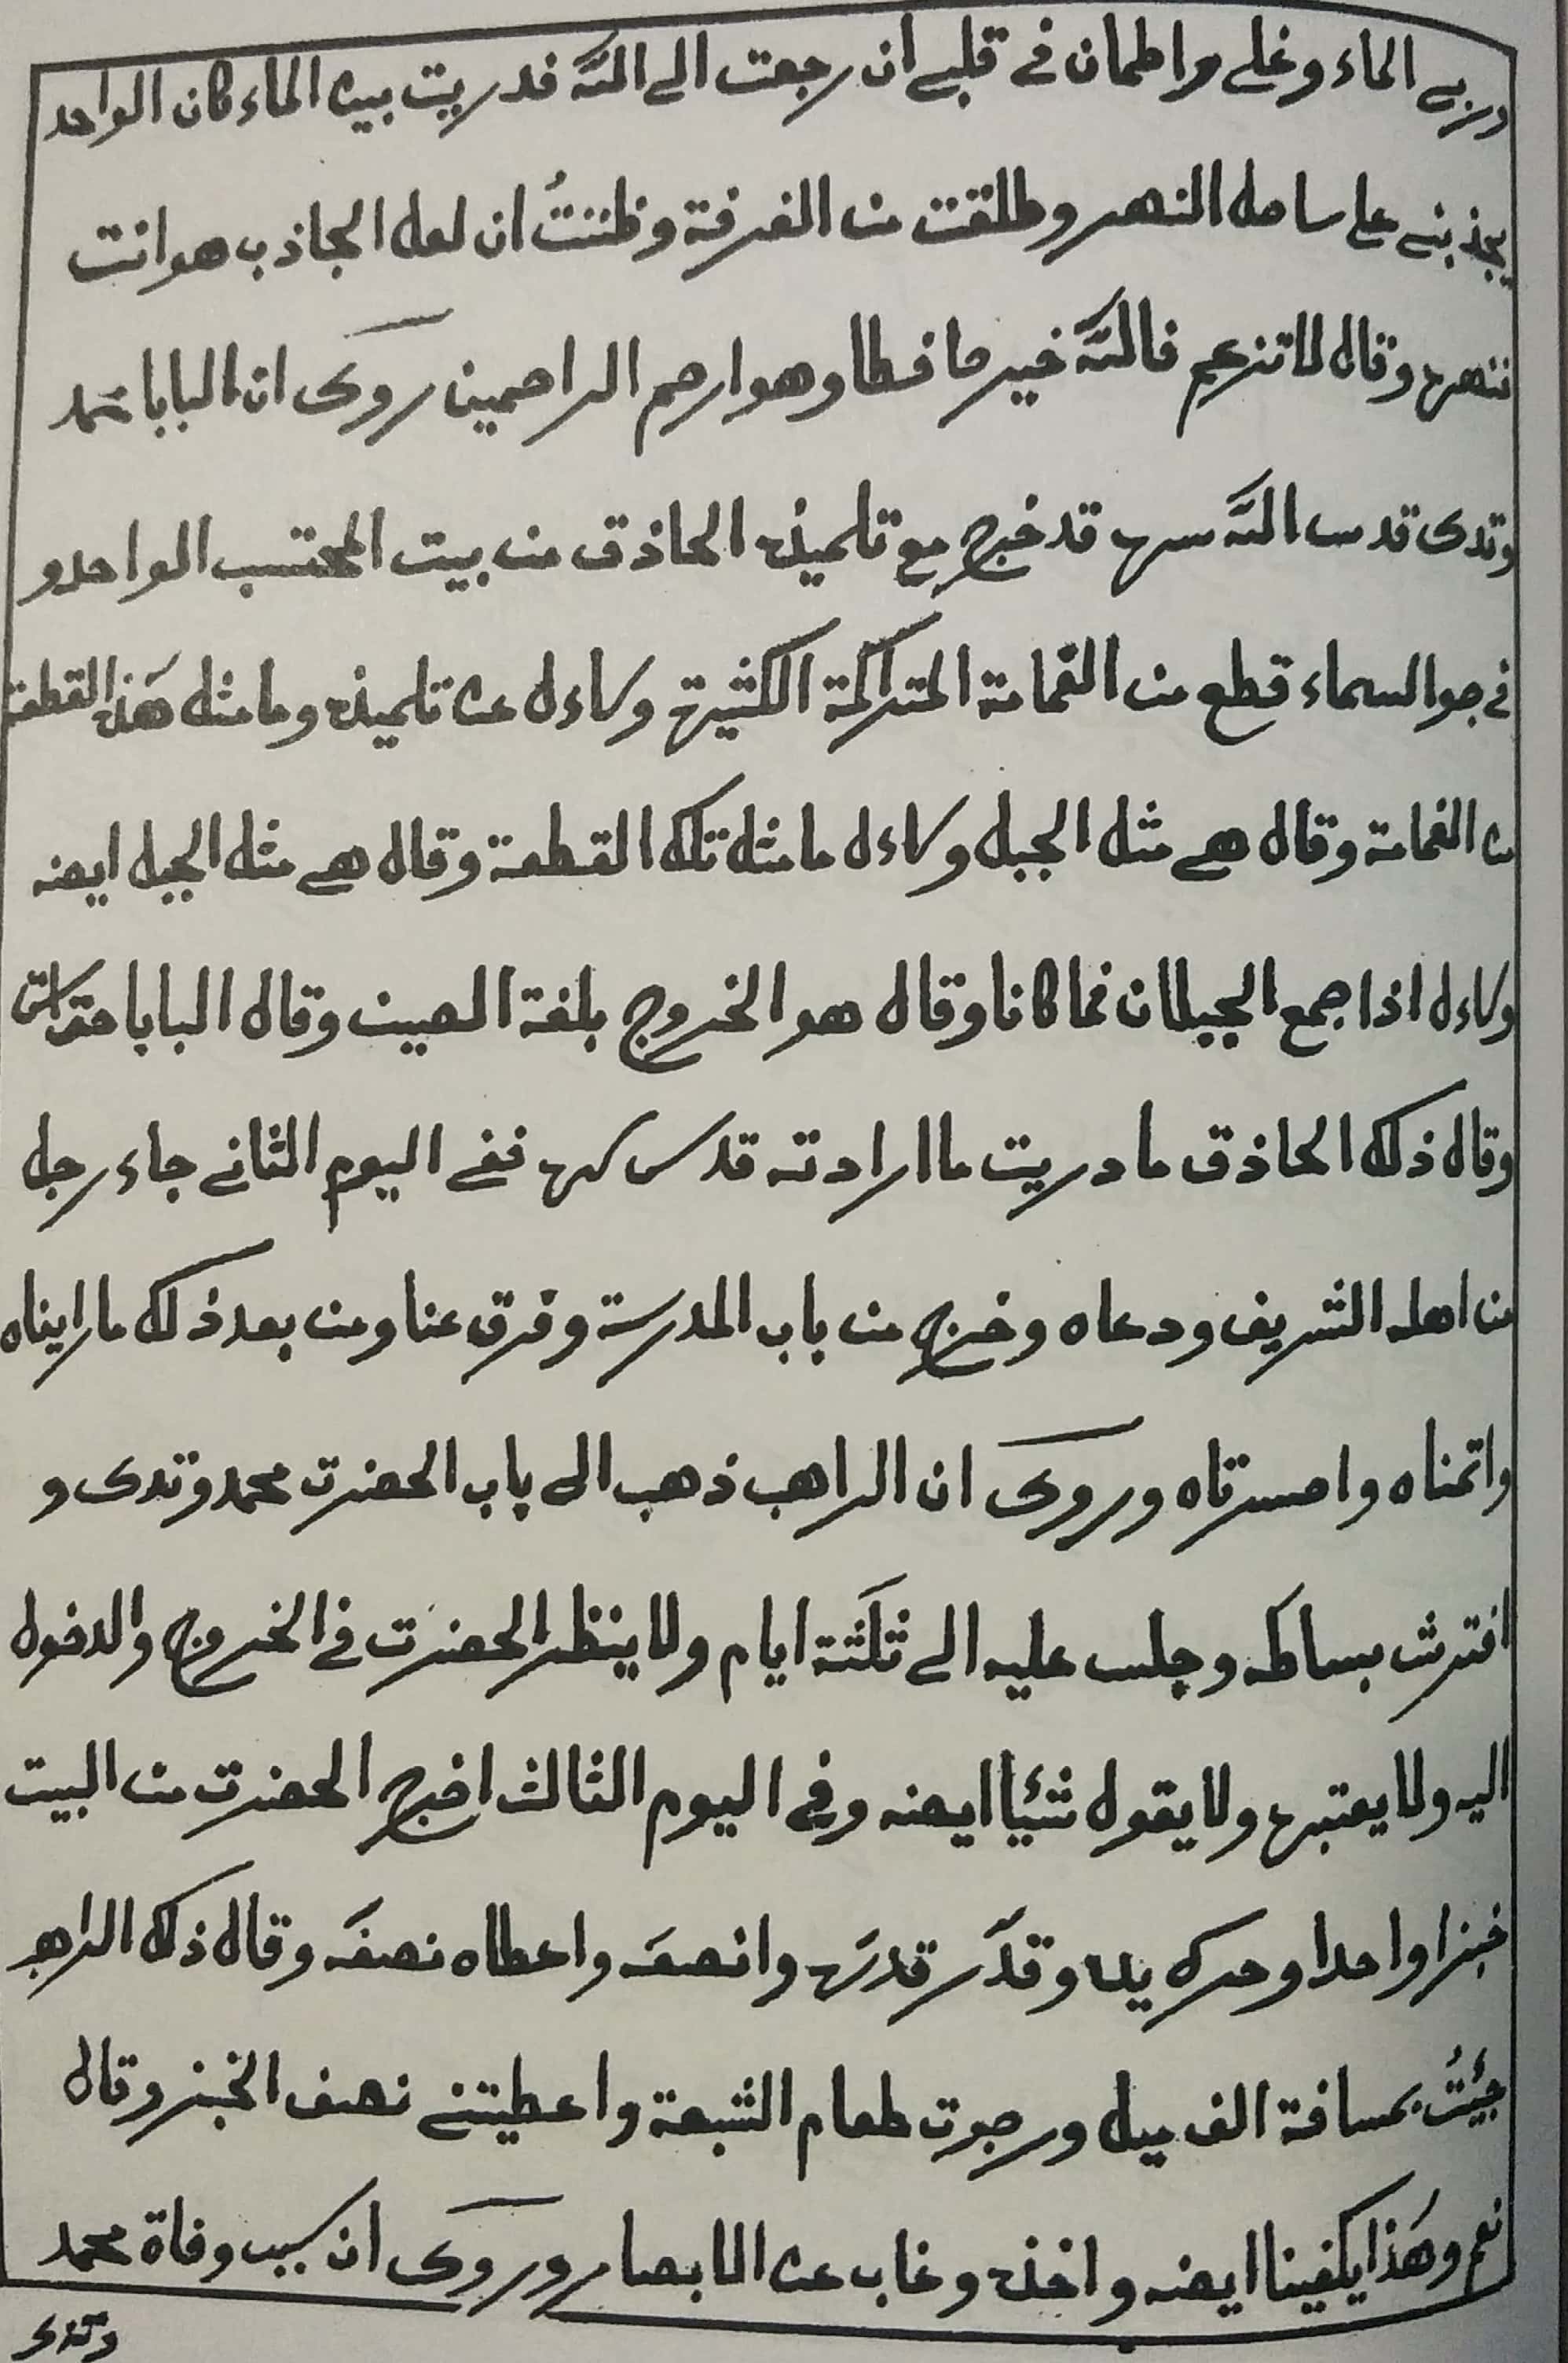 وربي الماء وغلي واطمان في قلبي ان رجعت الى الله فدريت بيده الماء كان الواحد
يجذبني على ساحل النهر وطلقت من الغرفة وظننتُ ان لعل الجاذب هو انت
فنهره وقال لا تزعم فالله خير حافظا وهو ارحم الراحمين روى ان البابا محمد
وتدى قدس الله سره قد خرج مع تلميذه الحاذق من بيت المحتسب الواحد و
في جو السماء قطع من الغمامة المتراكمة الكثيرة وساءل عن تلميذه وما مثل هذه القطعة
من الغمامة وقال هي مثل الجبل وساءل ما مثل تلك القطعة وقال هي مثل الجبل ايضه
وساءل اذا جمع الجبلان فما كانا وقال هو الخروج بلغة الصين وقال البابا حق
وقال ذلك الحاذق ما دريت ما ارادته قدس سره ففي اليوم الثاني جاء رجل
من اهله الشريف ودعاه وخرج من باب المدرسة وفرق عنا ومن بعد ذلك ما رايناه
واتمناه واحسرتاه وروى ان الراهب ذهب الى باب الحضرت محمد وتدى و
افترش بساطه وجلس عليه الى ثلثة ايام ولا ينظر الحضرت في الخروج والدخول
اليه ولا يعتبره ولا يقول شئيا ايضه وفي اليوم الثالث اخرج الحضرت من البيت
خبزا واحدا وحرك يده وقدّر قدره وانصفه واعطاه نصفه وقال ذلك الراهب
جيئتُ بمسافة الف ميل ورجوت طعام الشبعة واعطيتني نصف الخبز وقال
نعم وهذا يكفينا ايضه واخذه وغاب عن الابصار وروى ان سبب وفاة محمد
وتدى